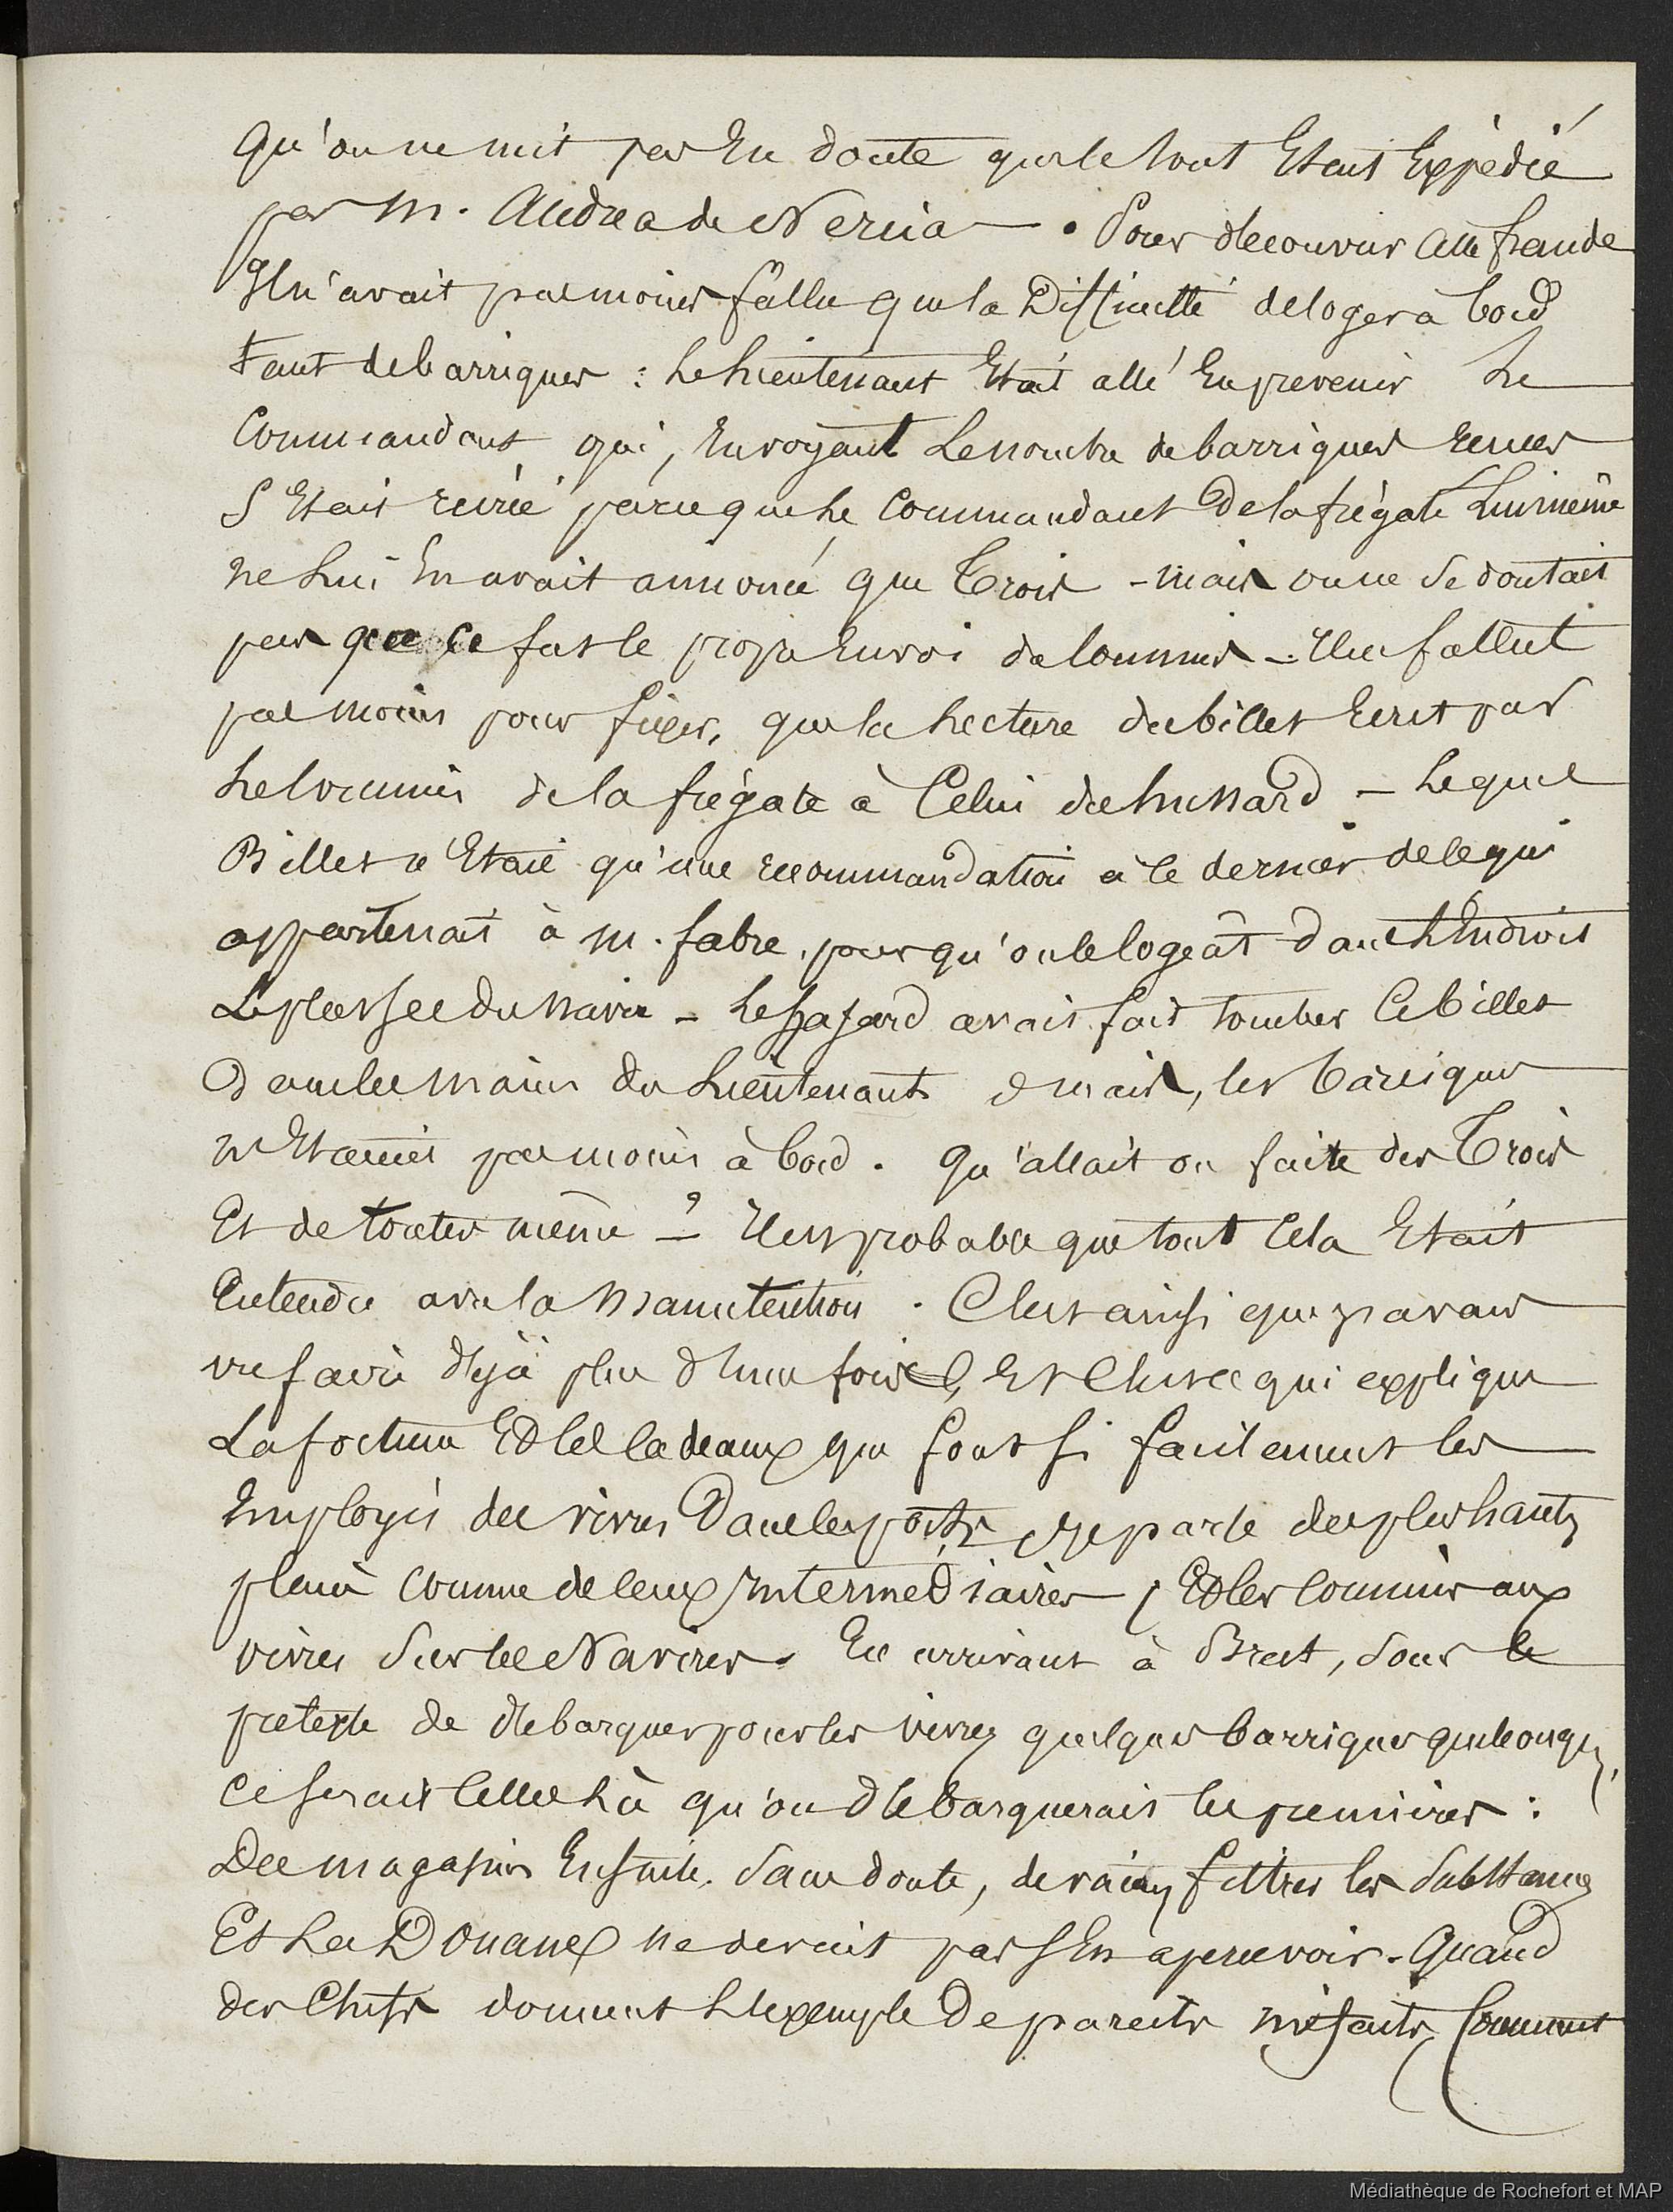 Qu'on ne mit pas En doute que le tout Etant Expédié
par M. Andrea de Nerciat. Pour découvrir cette fraude
Il n'avait pas moins fallu que la Difficulté de loger à bord
tant de barriques : Le Lieutenant Etait allé En prevenir Le
Commandant qui, En voyant Le nombre de barriques venues
S'Etait récrié parce que Le Commandant De la frégate Lui même
ne Lui En avait annoncé que Trois - mais on ne se doutait
pas que ce fut le propre Envoi du Commis - Il ne fallut
pas moins pour fixer, que la Lecture du billet Ecrit par
Le Commis de la frégate à Celui du hussard - Lequel
Billet n'Etait qu'une recommandation à ce dernier de ce qui
appartenait à M. fabre, pour qu'on le logeât dans L'Endroit
Le plus sec du Navire - Le hazard avait fait tomber Ce billet
Dans les mains du Lieutenant Mais, les barriques
n'Etaient pas moins à bord. Qu'allait on faire des Trois
Et de toutes même ? - Il est probable que tout Cela Etait
Entendu avec la Manutention. C'est ainsi que j'avais
vu faire déjà plus d'une fois, Et C'est ce qui explique
La fortune Et les Cadeaux que font si facilement les
Employés des vivres Dans les ports, je parle des plus hauts
placés comme de ceux Intermédiaires, Et les Commis aux
vivres Sur les Navires. En arrivant à Brest, sous le
pretexte de débarquer pour les vivres quelques barriques quelconques,
Ce serait Celles Là qu'on débarquerait les premières :
Des magasins Ensuite, sans doute, devaient filtrer les substances
Et La Douane ne devait pas s'En apercevoir. Quand
des Chefs donnent L'Exemple De pareils méfaits, Comment
Médiathèque de Rochefort et MAP